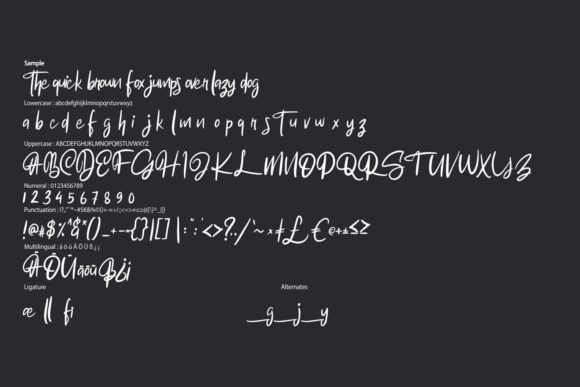 Sample
The quick brown fox jumps over lazy dog
Lowercase : abcdefghijklmnopqrstuvwxyz
a b c d e f g h i j k l m n o p q r s t u v w x y z
Uppercase : ABCDEFGHIJKLMNOPQRSTUVWXYZ
ABCDEFGHIJKLMNOPQRSTUVWXYZ
Numeral : 0123456789
1 2 3 4 5 6 7 8 9 0
Punctuation :
Multilingual : ä ö ü Ä Ö Ü ß ¿ ¡
ÄÖÜäöüß¿¡
Ligature Alternates
æ ll fi g j y